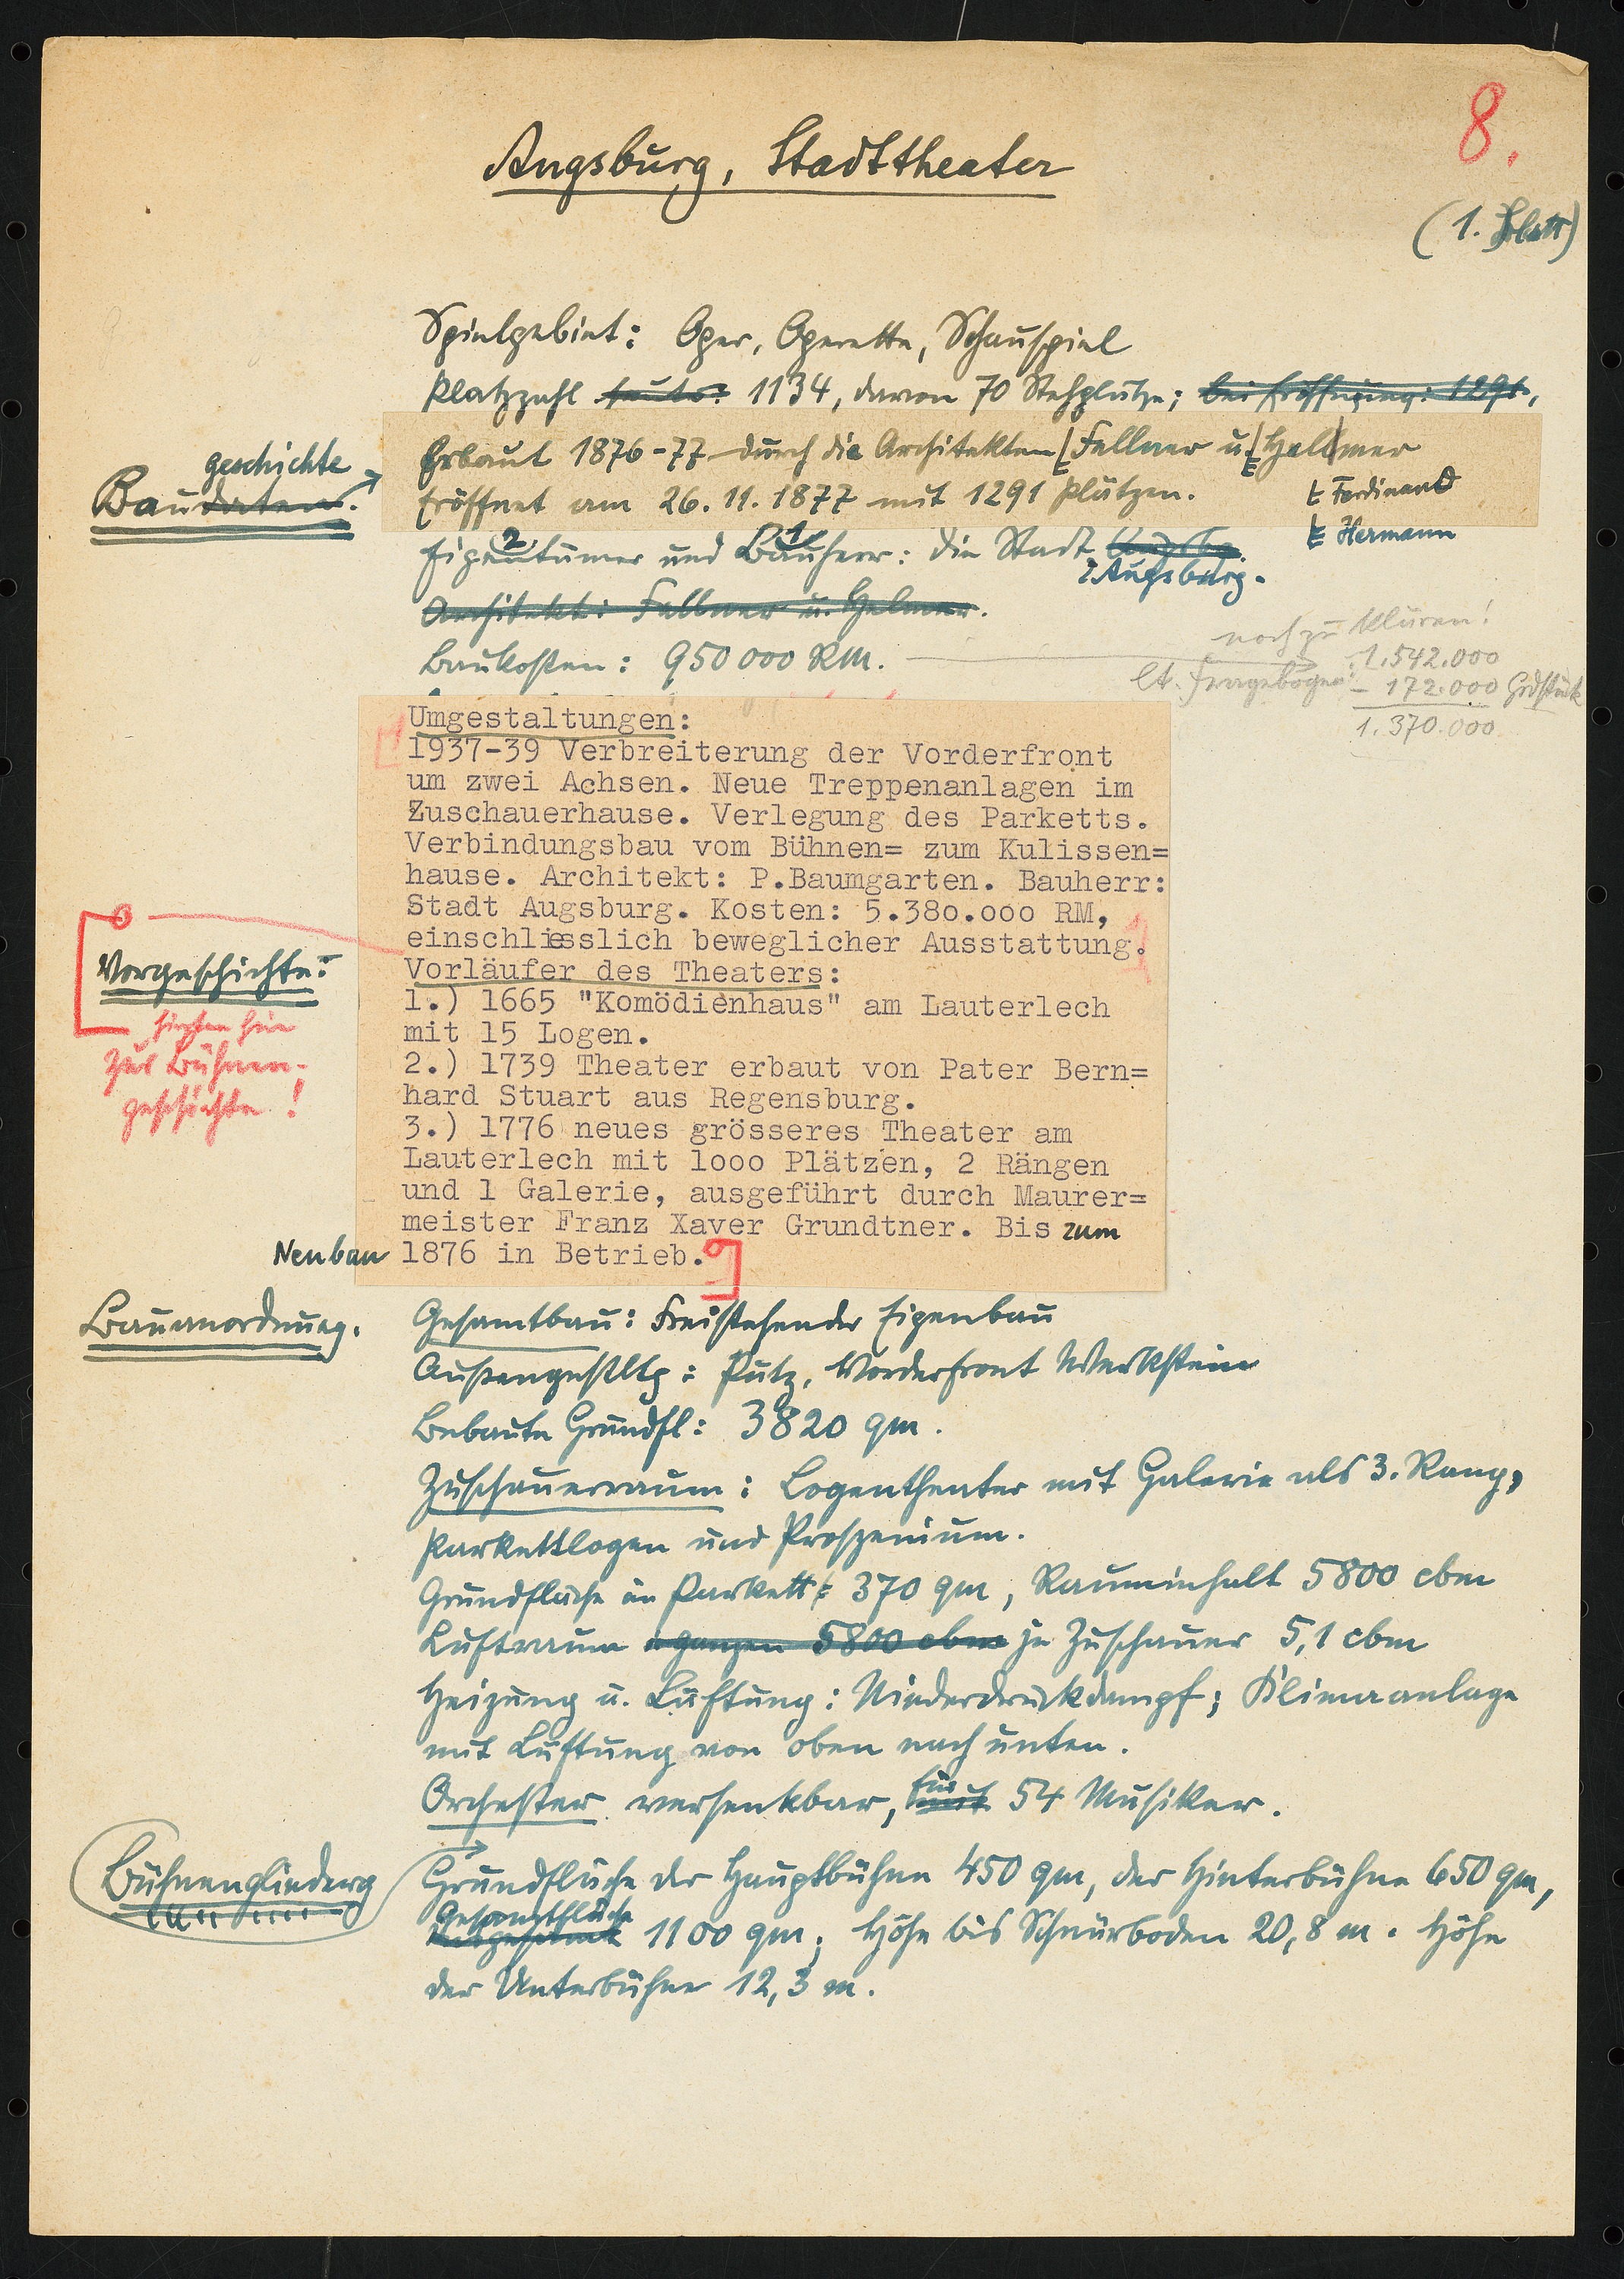 8.
Augsburg, Stadttheater
(1. Blatt)
Spielgebiet: Oper, Operette, Schauspiel
Platzzahl heute: 1134, davon 70 Stehplätze; bei Eröffnung: 1291,
geschichte
Baudaten.
Erbaut 1876-77 durch die Architekten Fellner u. Hellmer
Eröffnet am 26.11.1877 mit 1291 Plätzen.
Ferdinand
Hermann
2. 1
Eigentümer und Bauherr: die Stadt Augsbg.
Augsburg.
Architekt: Fellner u. Helmer.
Baukosten: 950 000 RM.
noch zu klären!
lt. Fragebogen: 1.542.000
- 172.000 Grdstück
1.370.000
Umgestaltungen:
1937-39 Verbreiterung der Vorderfront
um zwei Achsen. Neue Treppenanlagen im
Zuschauerhause. Verlegung des Parketts.
Verbindungsbau vom Bühnen= zum Kulissen=
hause. Architekt: P.Baumgarten. Bauherr:
Stadt Augsburg. Kosten: 5.380.000 RM,
einschliesslich beweglicher Ausstattung.
Vorgeschichte:
hinten hin
zur Bühnen-
geschichte!
Vorläufer des Theaters:
1.) 1665 "Komödienhaus" am Lauterlech
mit 15 Logen.
2.) 1739 Theater erbaut von Pater Bern=
hard Stuart aus Regensburg.
3.) 1776 neues grösseres Theater am
Lauterlech mit 1000 Plätzen, 2 Rängen
und 1 Galerie, ausgeführt durch Maurer=
meister Franz Xaver Grundtner. Bis zum
Neubau 1876 in Betrieb.
Bauanordnung.
Gesamtbau: Freistehender Eigenbau
Außengestltg: Putz, Vorderfront Werkstein
Bebaute Grundfl: 3820 qm.
Zuschauerraum: Logentheater mit Galerie als 3. Rang,
Parkettlogen und Proszenium.
Grundfläche im Parkett: 370 qm, Rauminhalt 5800 cbm
Luftraum i. ganzen 5800 cbm je Zuschauer 5,1 cbm
Heizung u. Lüftung: Niederdruckdampf; Klimaanlage
mit Lüftung von oben nach unten.
für
Orchester versenkbar, mit 54 Musiker.
Bühnengliederg
Grundfläche der Hauptbühne 450 qm, der Hinterbühne 650 qm,
Gesamtfläche
Insgesamt 1100 qm; Höhe bis Schnürboden 20,8 m. Höhe
der Unterbühne 12,3 m.